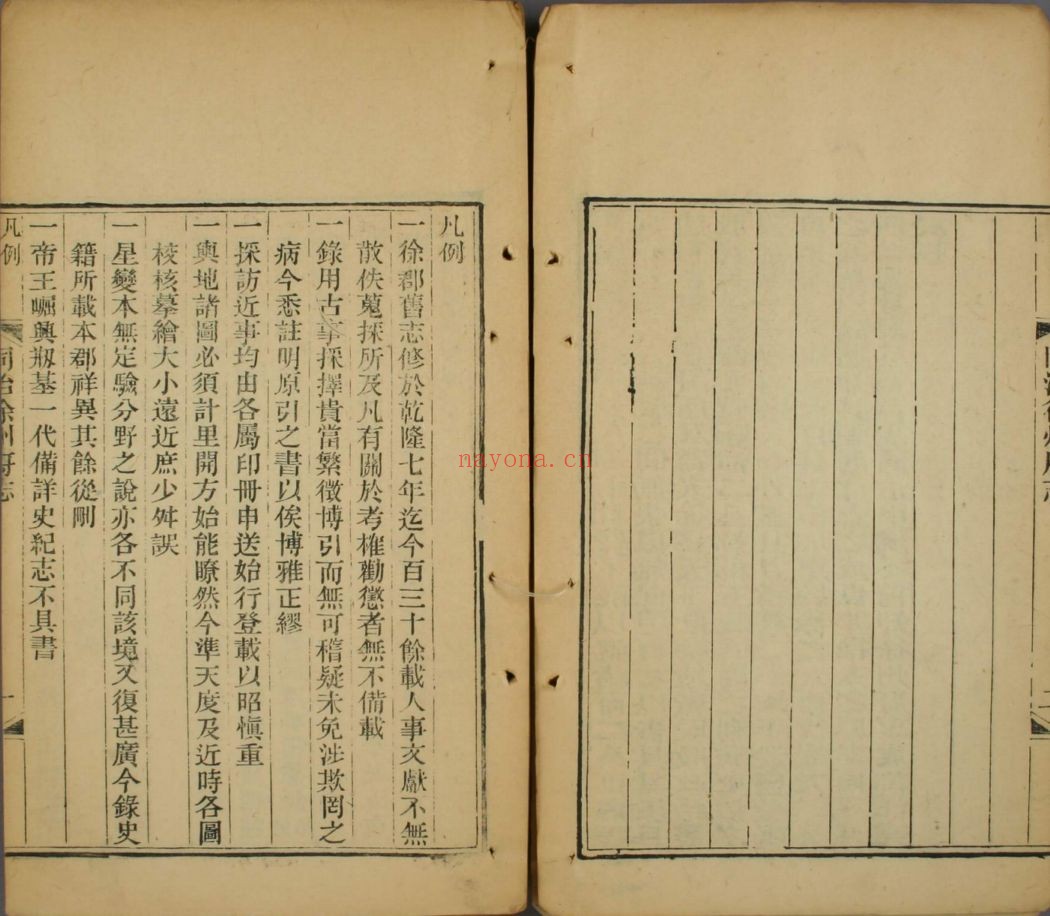 凡例
一徐郡舊志修於乾隆七年迄今百三十餘載人事文獻不無
散佚蒐採所及凡有關於考榷勸懲者無不備載
一錄用古事採擇貴當繁徵博引而無可稽疑未免涉欺罔之
病今悉註明原引之書以俟博雅正繆
一採訪近事均由各屬印冊申送始行登載以昭慎重
一輿地諸圖必須計里開方始能瞭然今準天度及近時各圖
校核摹繪大小遠近庶少舛誤
一星變本無定驗分野之說亦各不同該境又復甚廣今錄史
籍所載本郡祥異其餘從刪
一帝王崛興剏基一代備詳史紀志不具書
凡例
同治徐州府志
一
nayona.cn